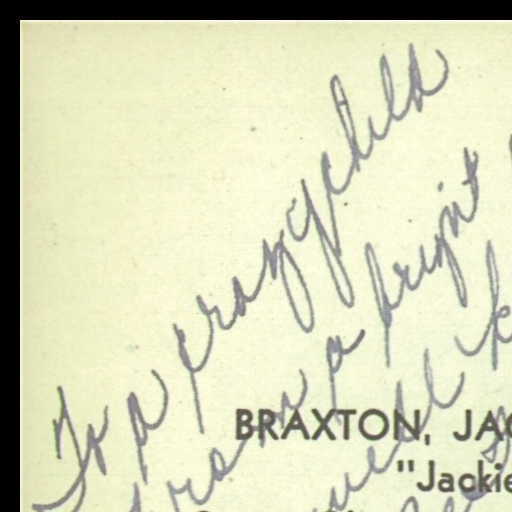 To a crazy child
from a bright
well k
BRAXTON, JAC
"Jackie